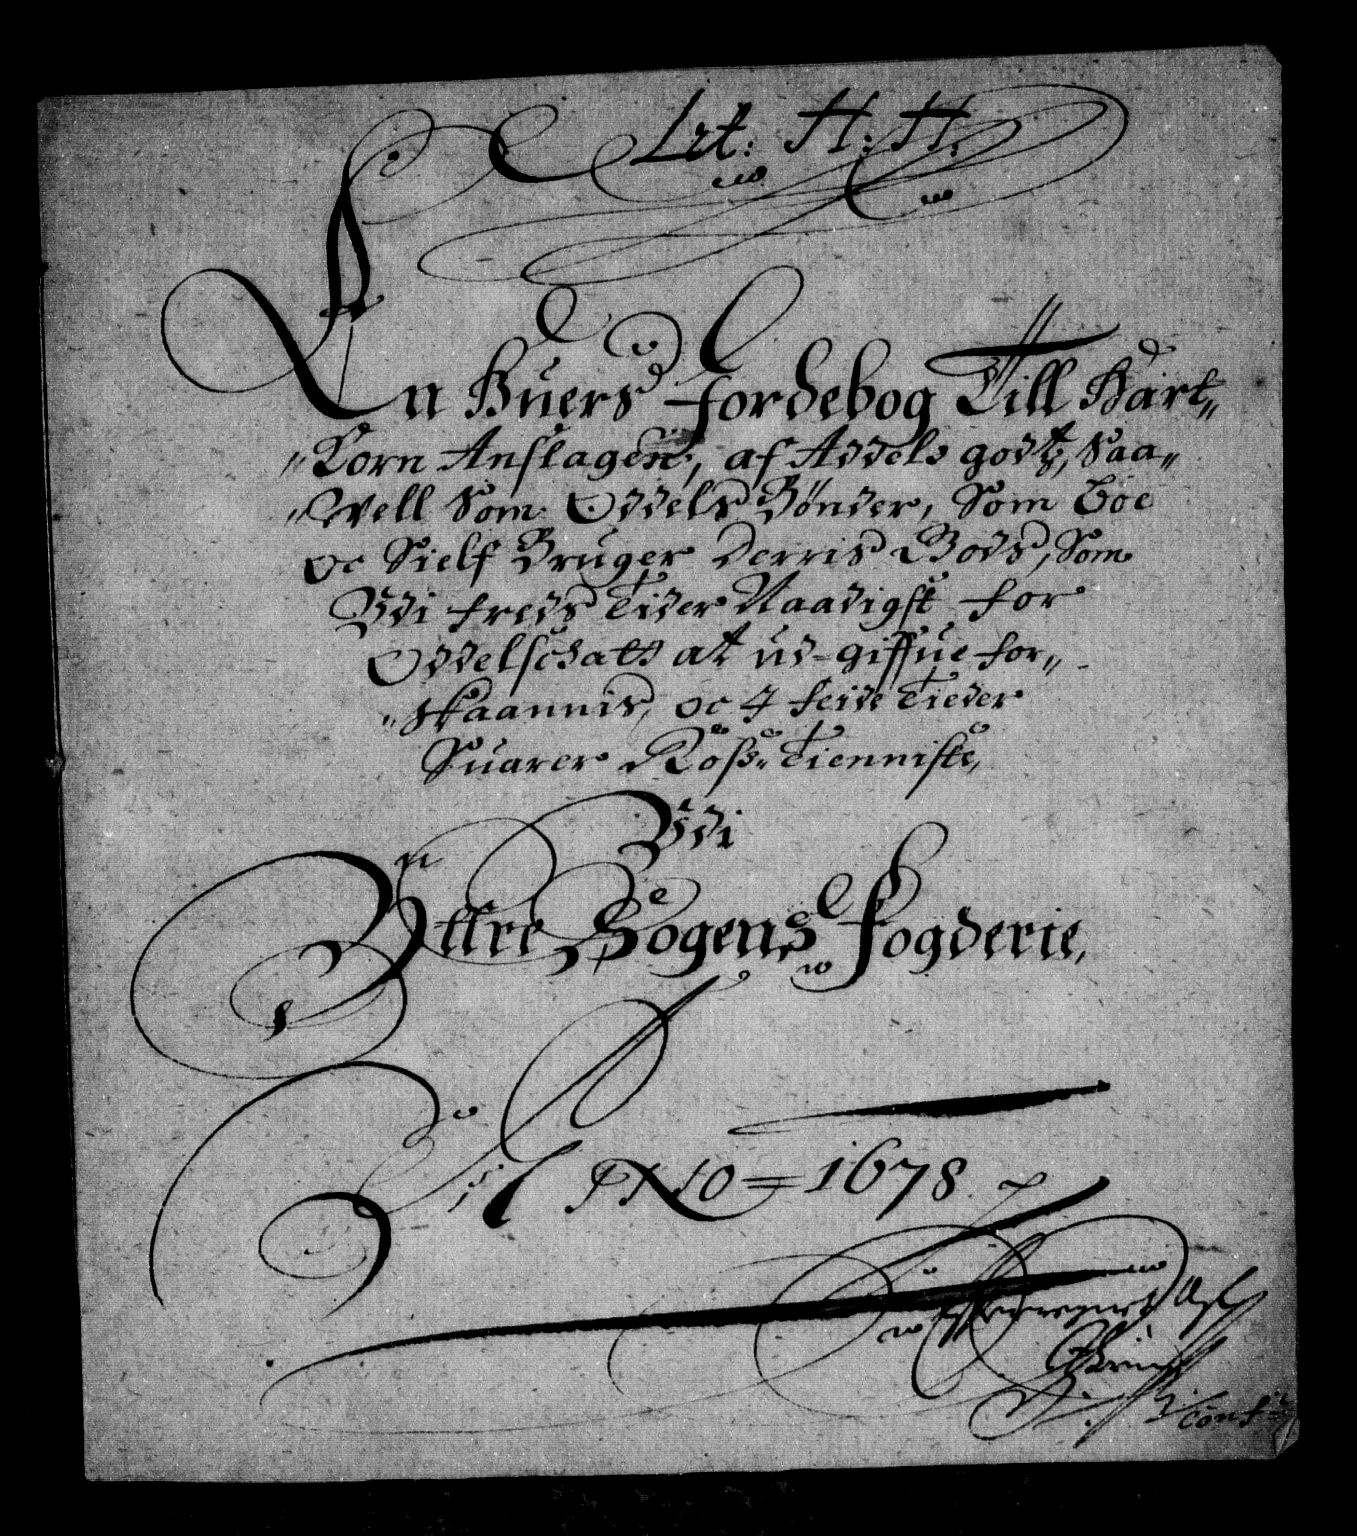 Lit: H: H.
En Huers Jordebog Till Hart„
„Korn Anslagen, af Addels godtz, Saa„
„Well Som Oddels Bønder, Som boe
oc Sielf Bruger Derris Gods, Som
Udi freds Tider Naadigst for
Oddelschatt at ud-giffue for„
„skaannis, oc J feide Tieder
Suarer Roß-Tienniste,
Udi
Yttre Sogens Fogderie,
ANNO = 1678